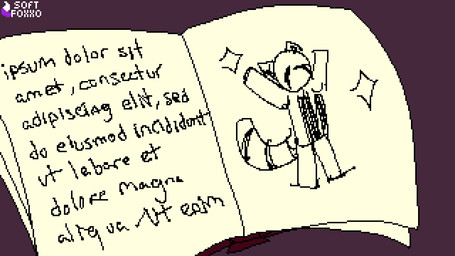 SOFT
FOXXO
ipsum dolor sit
amet, consectur
adipiscing elit, sed
do eiusmod incididunt
ut labore et
dolore magna
aliqua Ut enim